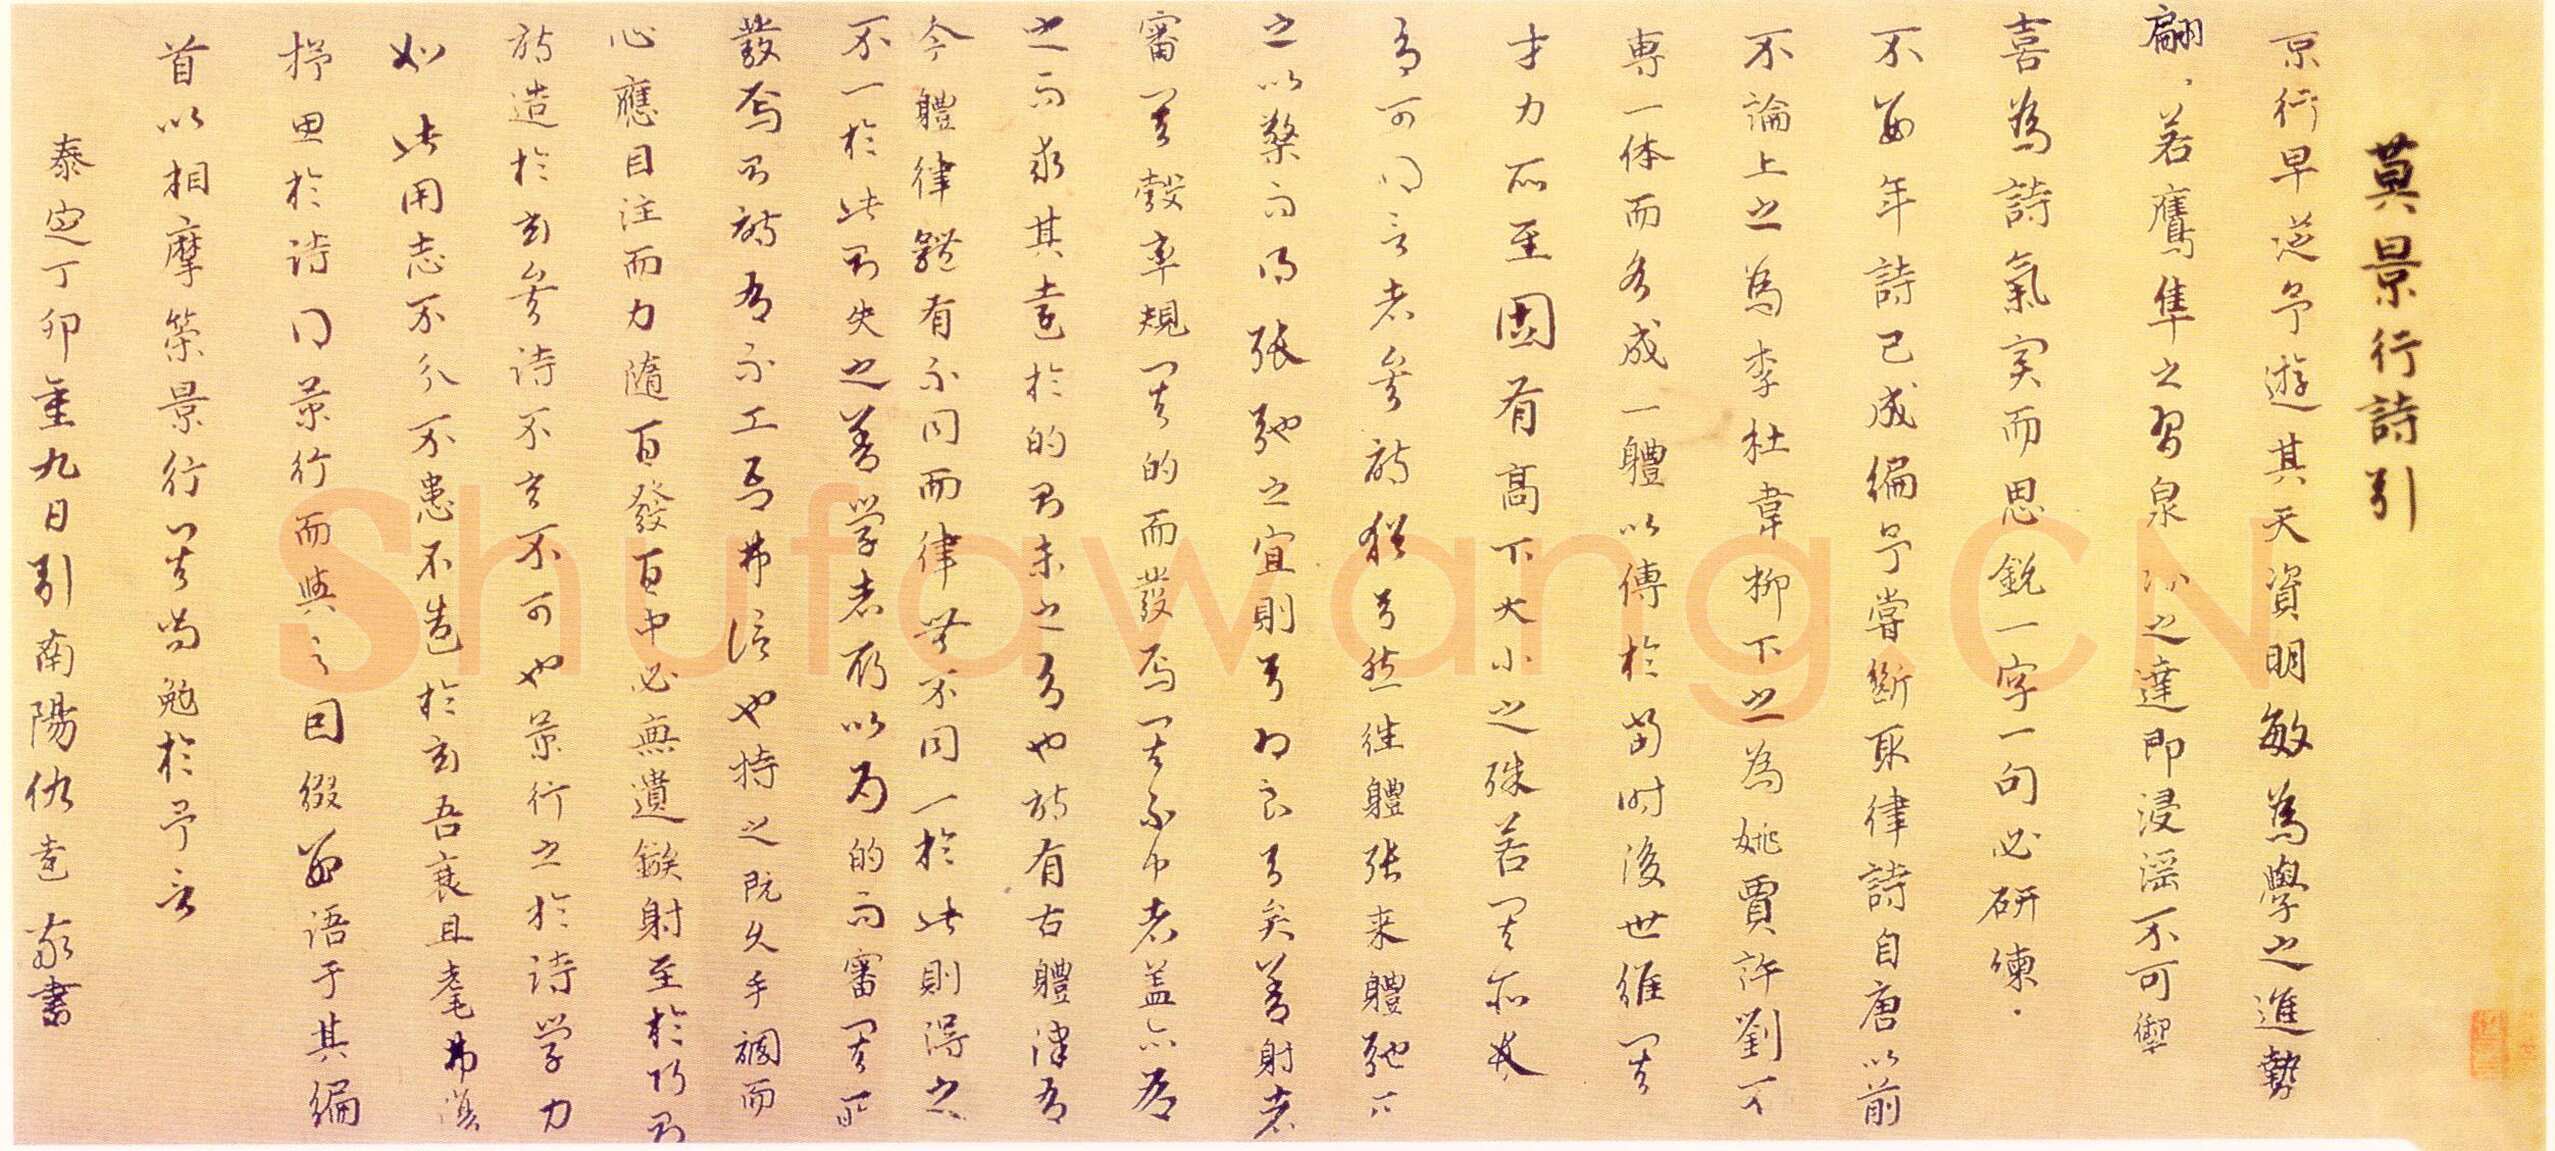 莫景行詩引
景行早從予遊其天資明敏為學之進勢
翩、若鷹隼之習泉 之達即浸淫不可禦
喜為詩氣寔而思銳一字一句必研練
不數年詩已成編予嘗斷取律詩自唐以前
不論上之為李杜韋柳下之為姚賈許劉不
專一体而各成一體以傳於當时後世雖其
才力所至固有高下大小之殊若其所
有可得言者矣詩猶弓然徃體张来體弛
之以檠而得張弛之宜則弓為良弓矣善射者
審其彀率規其的而發焉其不中者蓋亦有
之而求其遠於的则未之有也詩有古體律有
今體律體有不同而律無不同一於此則得之
不一於此则失之善學者所以为的而審其所
發焉则詩有不工吾弗信也持之既久手調而
心應目注而力隨百發百中必無遺鏃射至於巧则
詩造於玄矣詩不玄不可也景行之於詩学力
如此用志不分不患不造於玄吾衰且耄弗復
抒思於詩得景行而與之因綴数语于其編
首以相摩策景行其尚勉於予言
泰定丁卯重九日引南陽仇遠敬書
Shufawang.CN